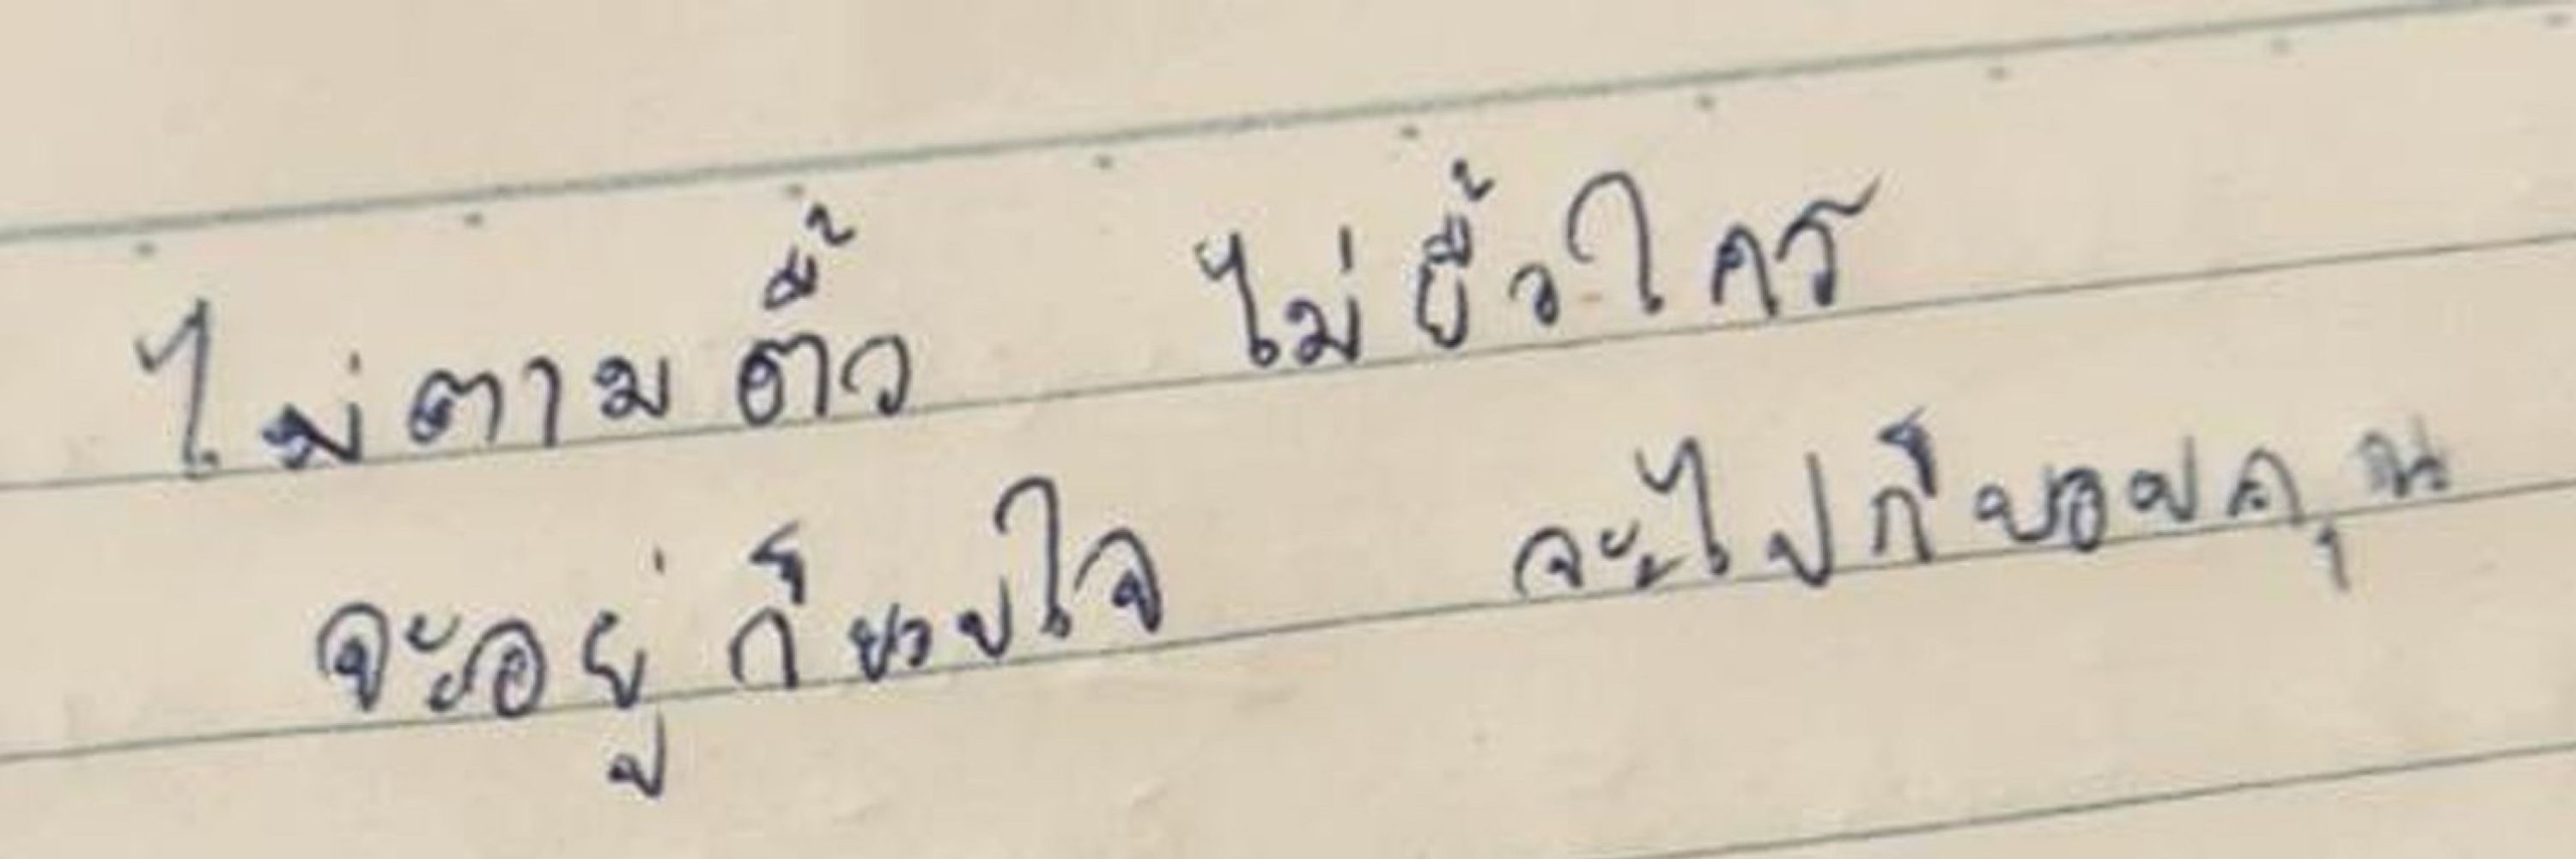 ไม่ตามตื้อ ไม่ยื้อใคร
จะอยู่ก็ขอบใจ จะไปก็ขอบคุณ